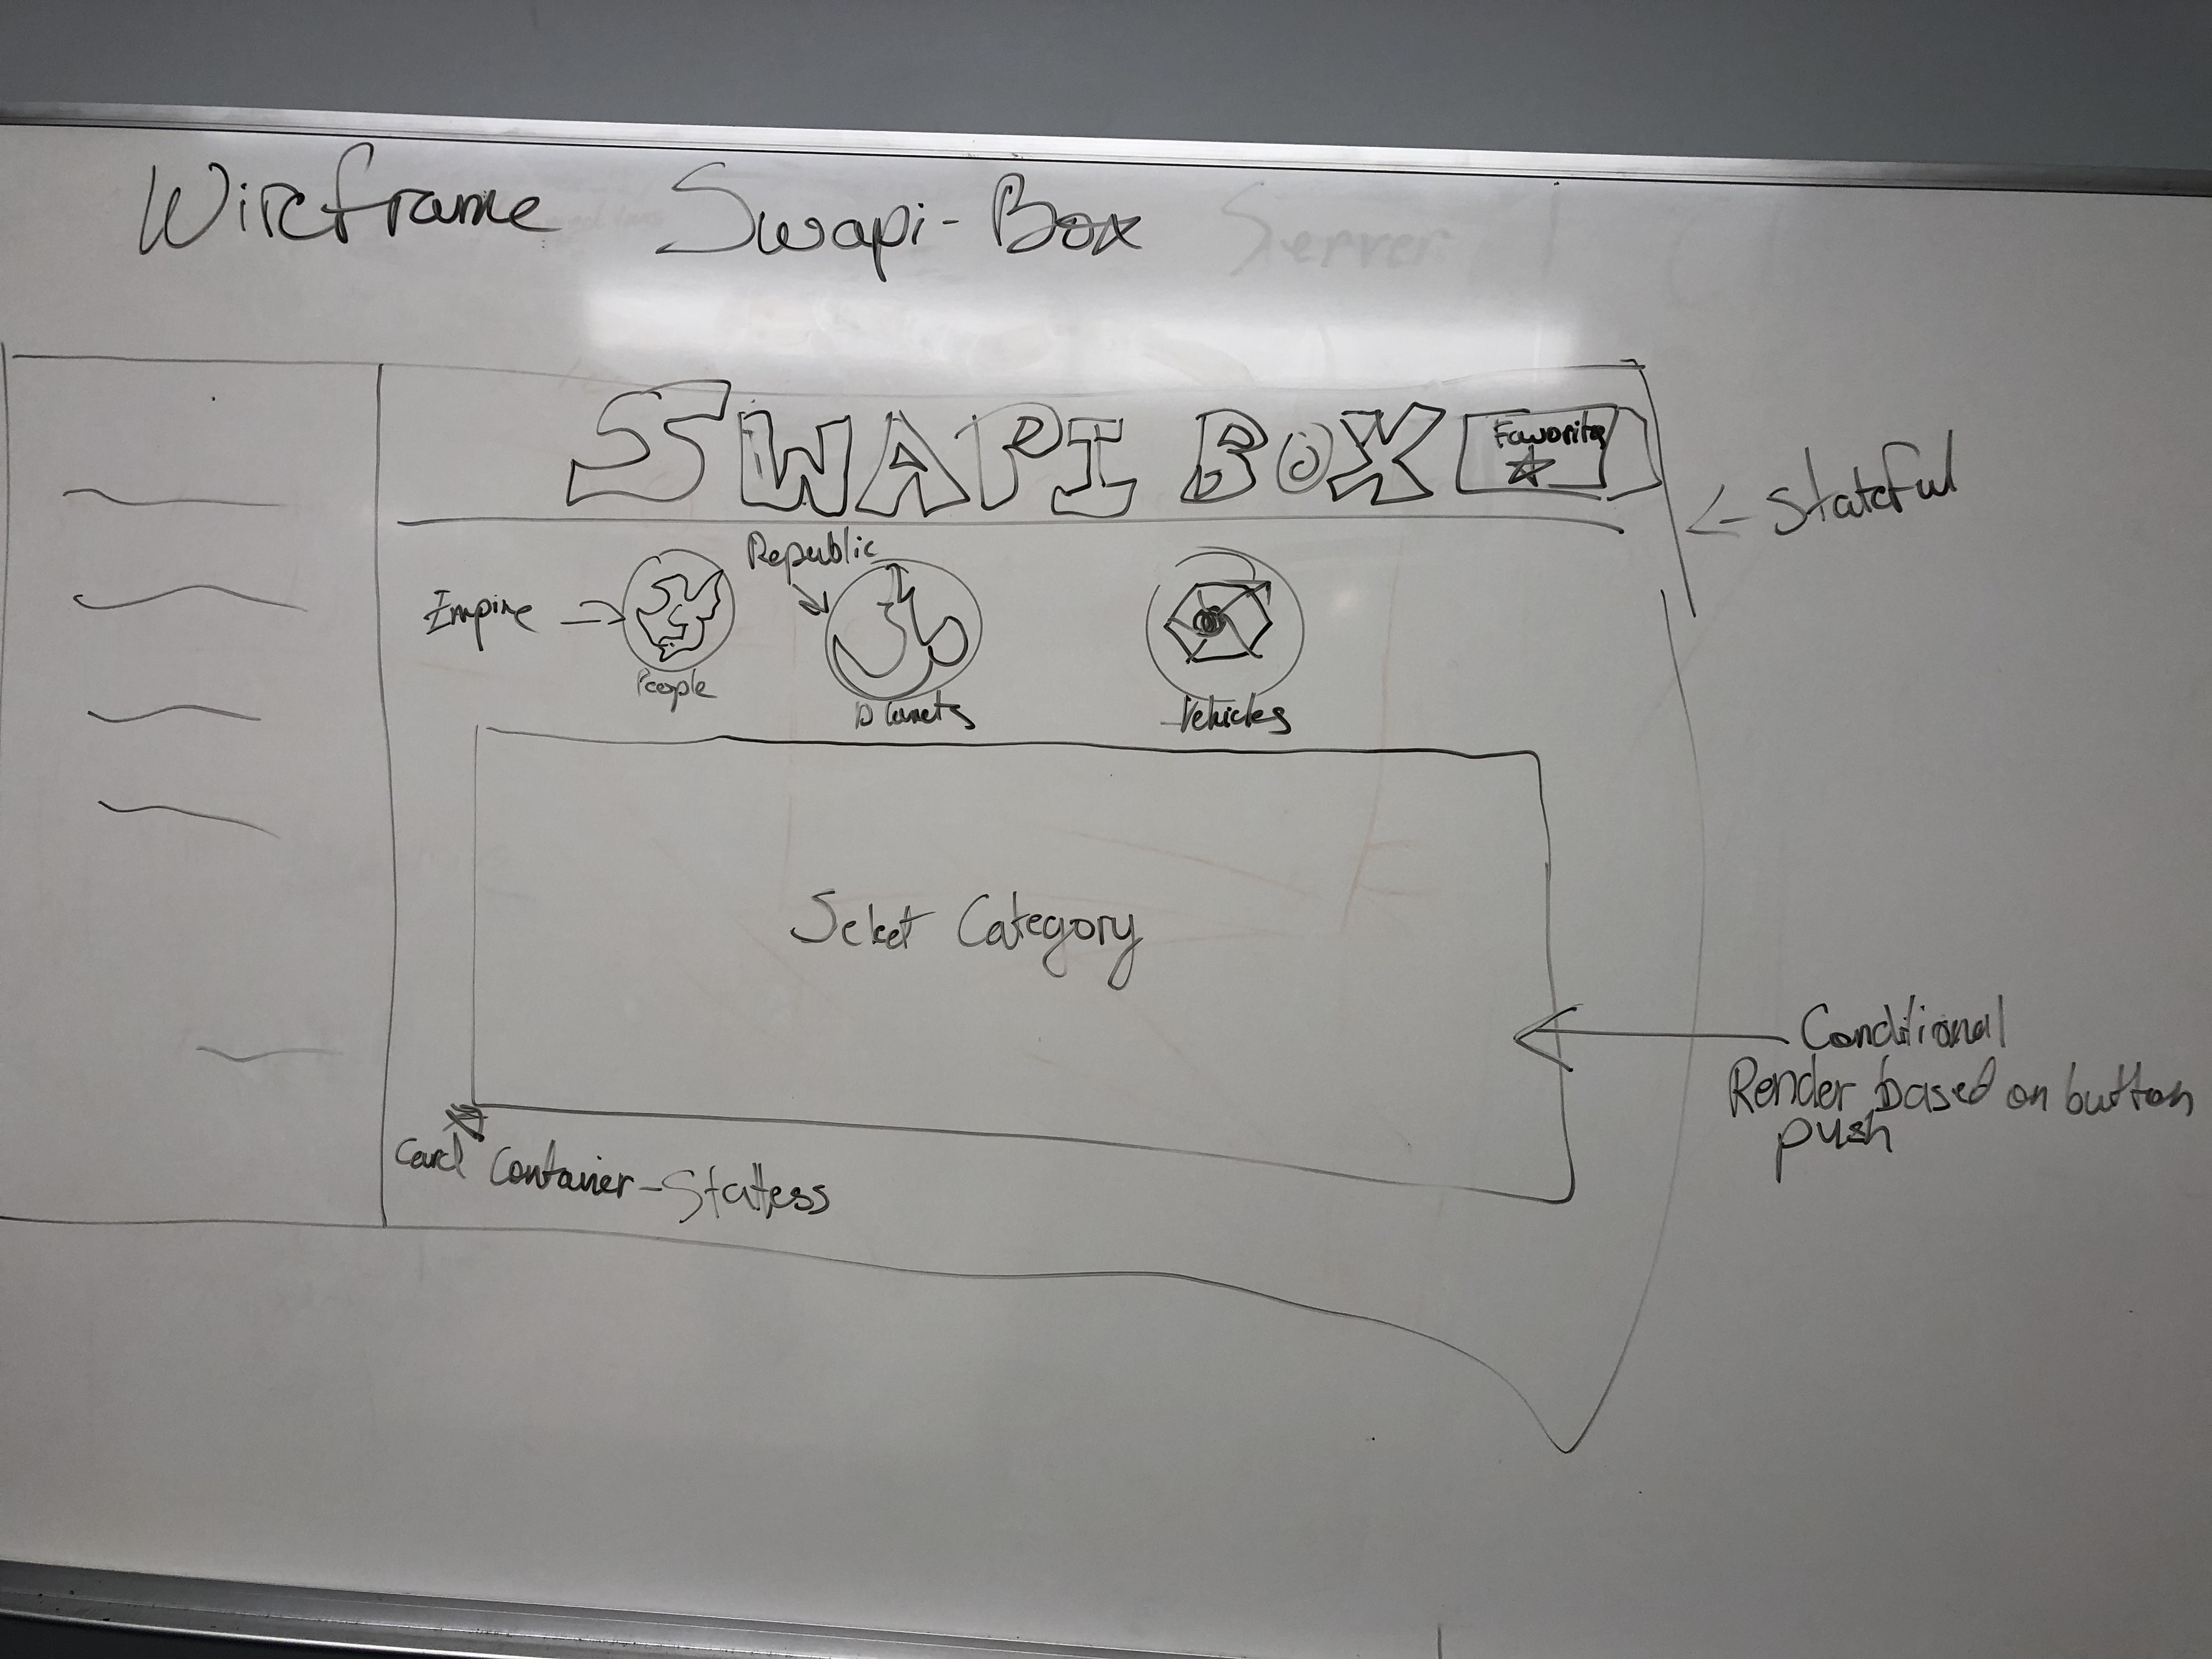 Wireframe Swapi-Box Server
SWAPI BOX
Favorites
<- Stateful
Republic
Empire =>
People
Planets
Vehicles
Select Category
Conditional
Render based on button
push
Card Container-Statless